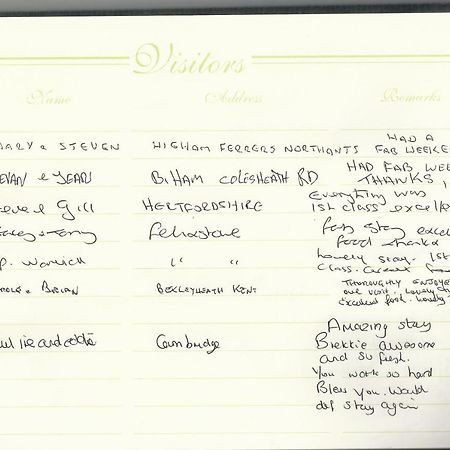 Visitors
Name Address Remarks
ARY & STEVEN HIGHAM FERRERS NORTHANTS HAD A
FAB WEEKE
EVAN & YEARS BIHAM COLESHEATH RD HAD FAB WEE
THANKS
eve & Gill HERTFORDSHIRE Everything was
1st class excelle
Felixstowe Fab stay excel
food thanks
P. Warwick " " Lovely stay. 1st
Class.
& BRIAN BEXLEYHEATH KENT THOROUGHLY ENJOYED
our visit. Lovely
excellent food. Lovely
Cambridge Amazing stay
Brekkie awesome
and so fresh.
You work so hard
Bless you. Would
def stay again